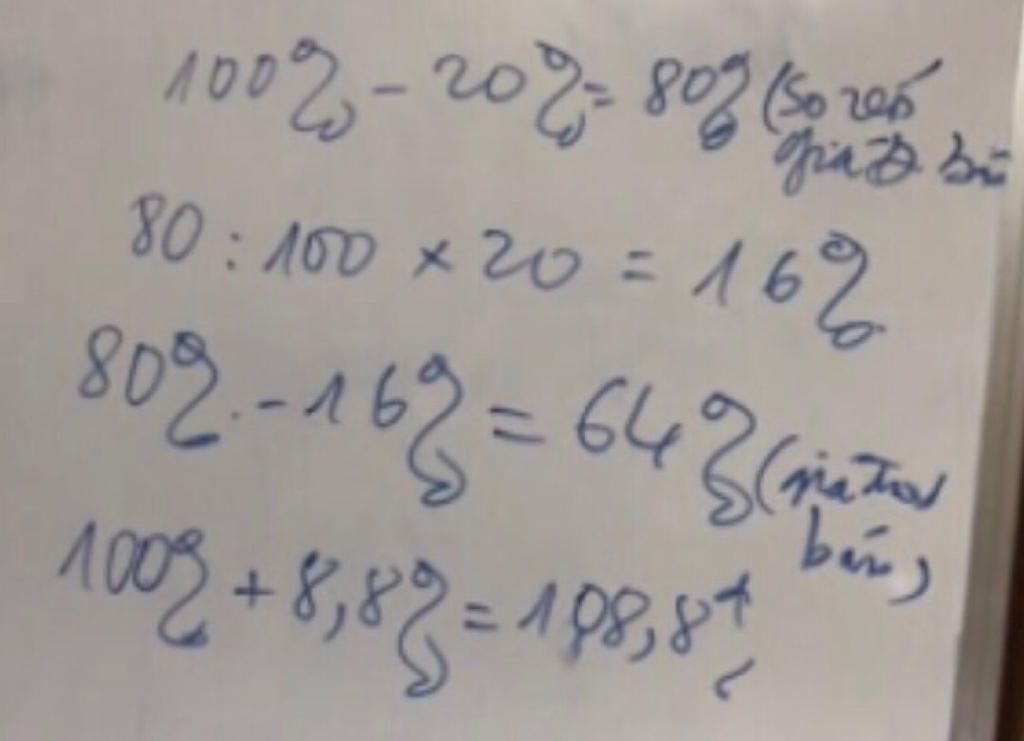 100% - 20% = 80% (So với
giá bán
80 : 100 x 20 = 16%
80% - 16% = 64% (giá
bán)
100% + 8,8% = 108,8%